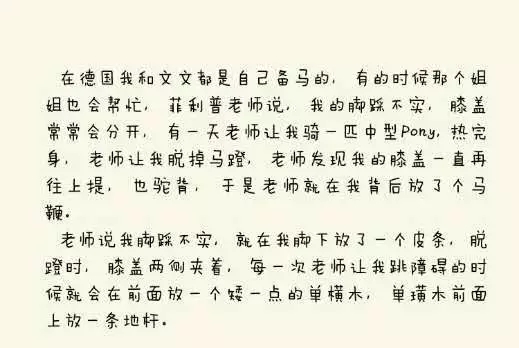 在德国我和文文都是自己备马的，有的时候那个姐
姐也会帮忙，菲利普老师说，我的脚踩不实，膝盖
常常会分开，有一天老师让我骑一匹中型Pony，热完
身，老师让我脱掉马蹬，老师发现我的膝盖一直再
往上提，也驼背，于是老师就在我背后放了个马
鞭。
老师说我脚踩不实，就在我脚下放了一个皮条，脱
蹬时，膝盖两侧夹着，每一次老师让我跳障碍的时
候就会在前面放一个矮一点的单横木，单璜木前面
上放一条地杆。